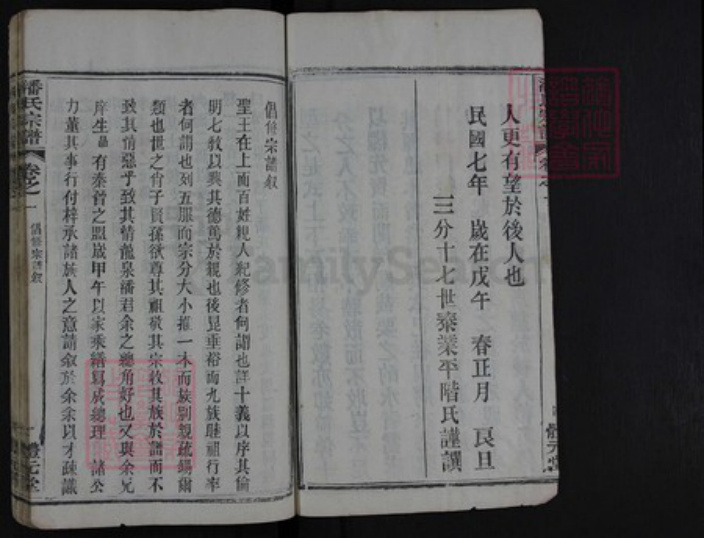 人更有望於後人也
民國七年 歲在戊午 春正月 良旦
三分十七世泰業平階氏謹譔
體元堂
潘氏宗譜
卷之一
倡修宗譜敘
體元堂
倡修宗譜敘
聖王在上而百姓親人紀修者何謂也詳十義以序其倫
明七敎以興其德篤於親也後昆垂裕而九族睦祖行率
者何謂也列五服而宗分大小推一本而族別親疏錫爾
類也世之肖子賢孫欲尊其祖敬其宗收其族於譜而不
致其情惡乎致其情龍泉潘君余之總角好也又與余兄
庠生晶有秦晉之盟歲甲午以家乘繕寫成總理諸公
力董其事行付梓承諸族人之意請敘於余余以才疎識
FamilySearch